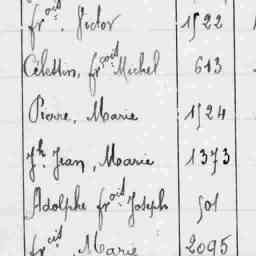 frçois. Victor 1522
Célestin, frçois Michel 613
Pierre, Marie 1524
Jh. Jean, Marie 1373
Adolphe frçois Joseph 501
frçois, Marie 2095